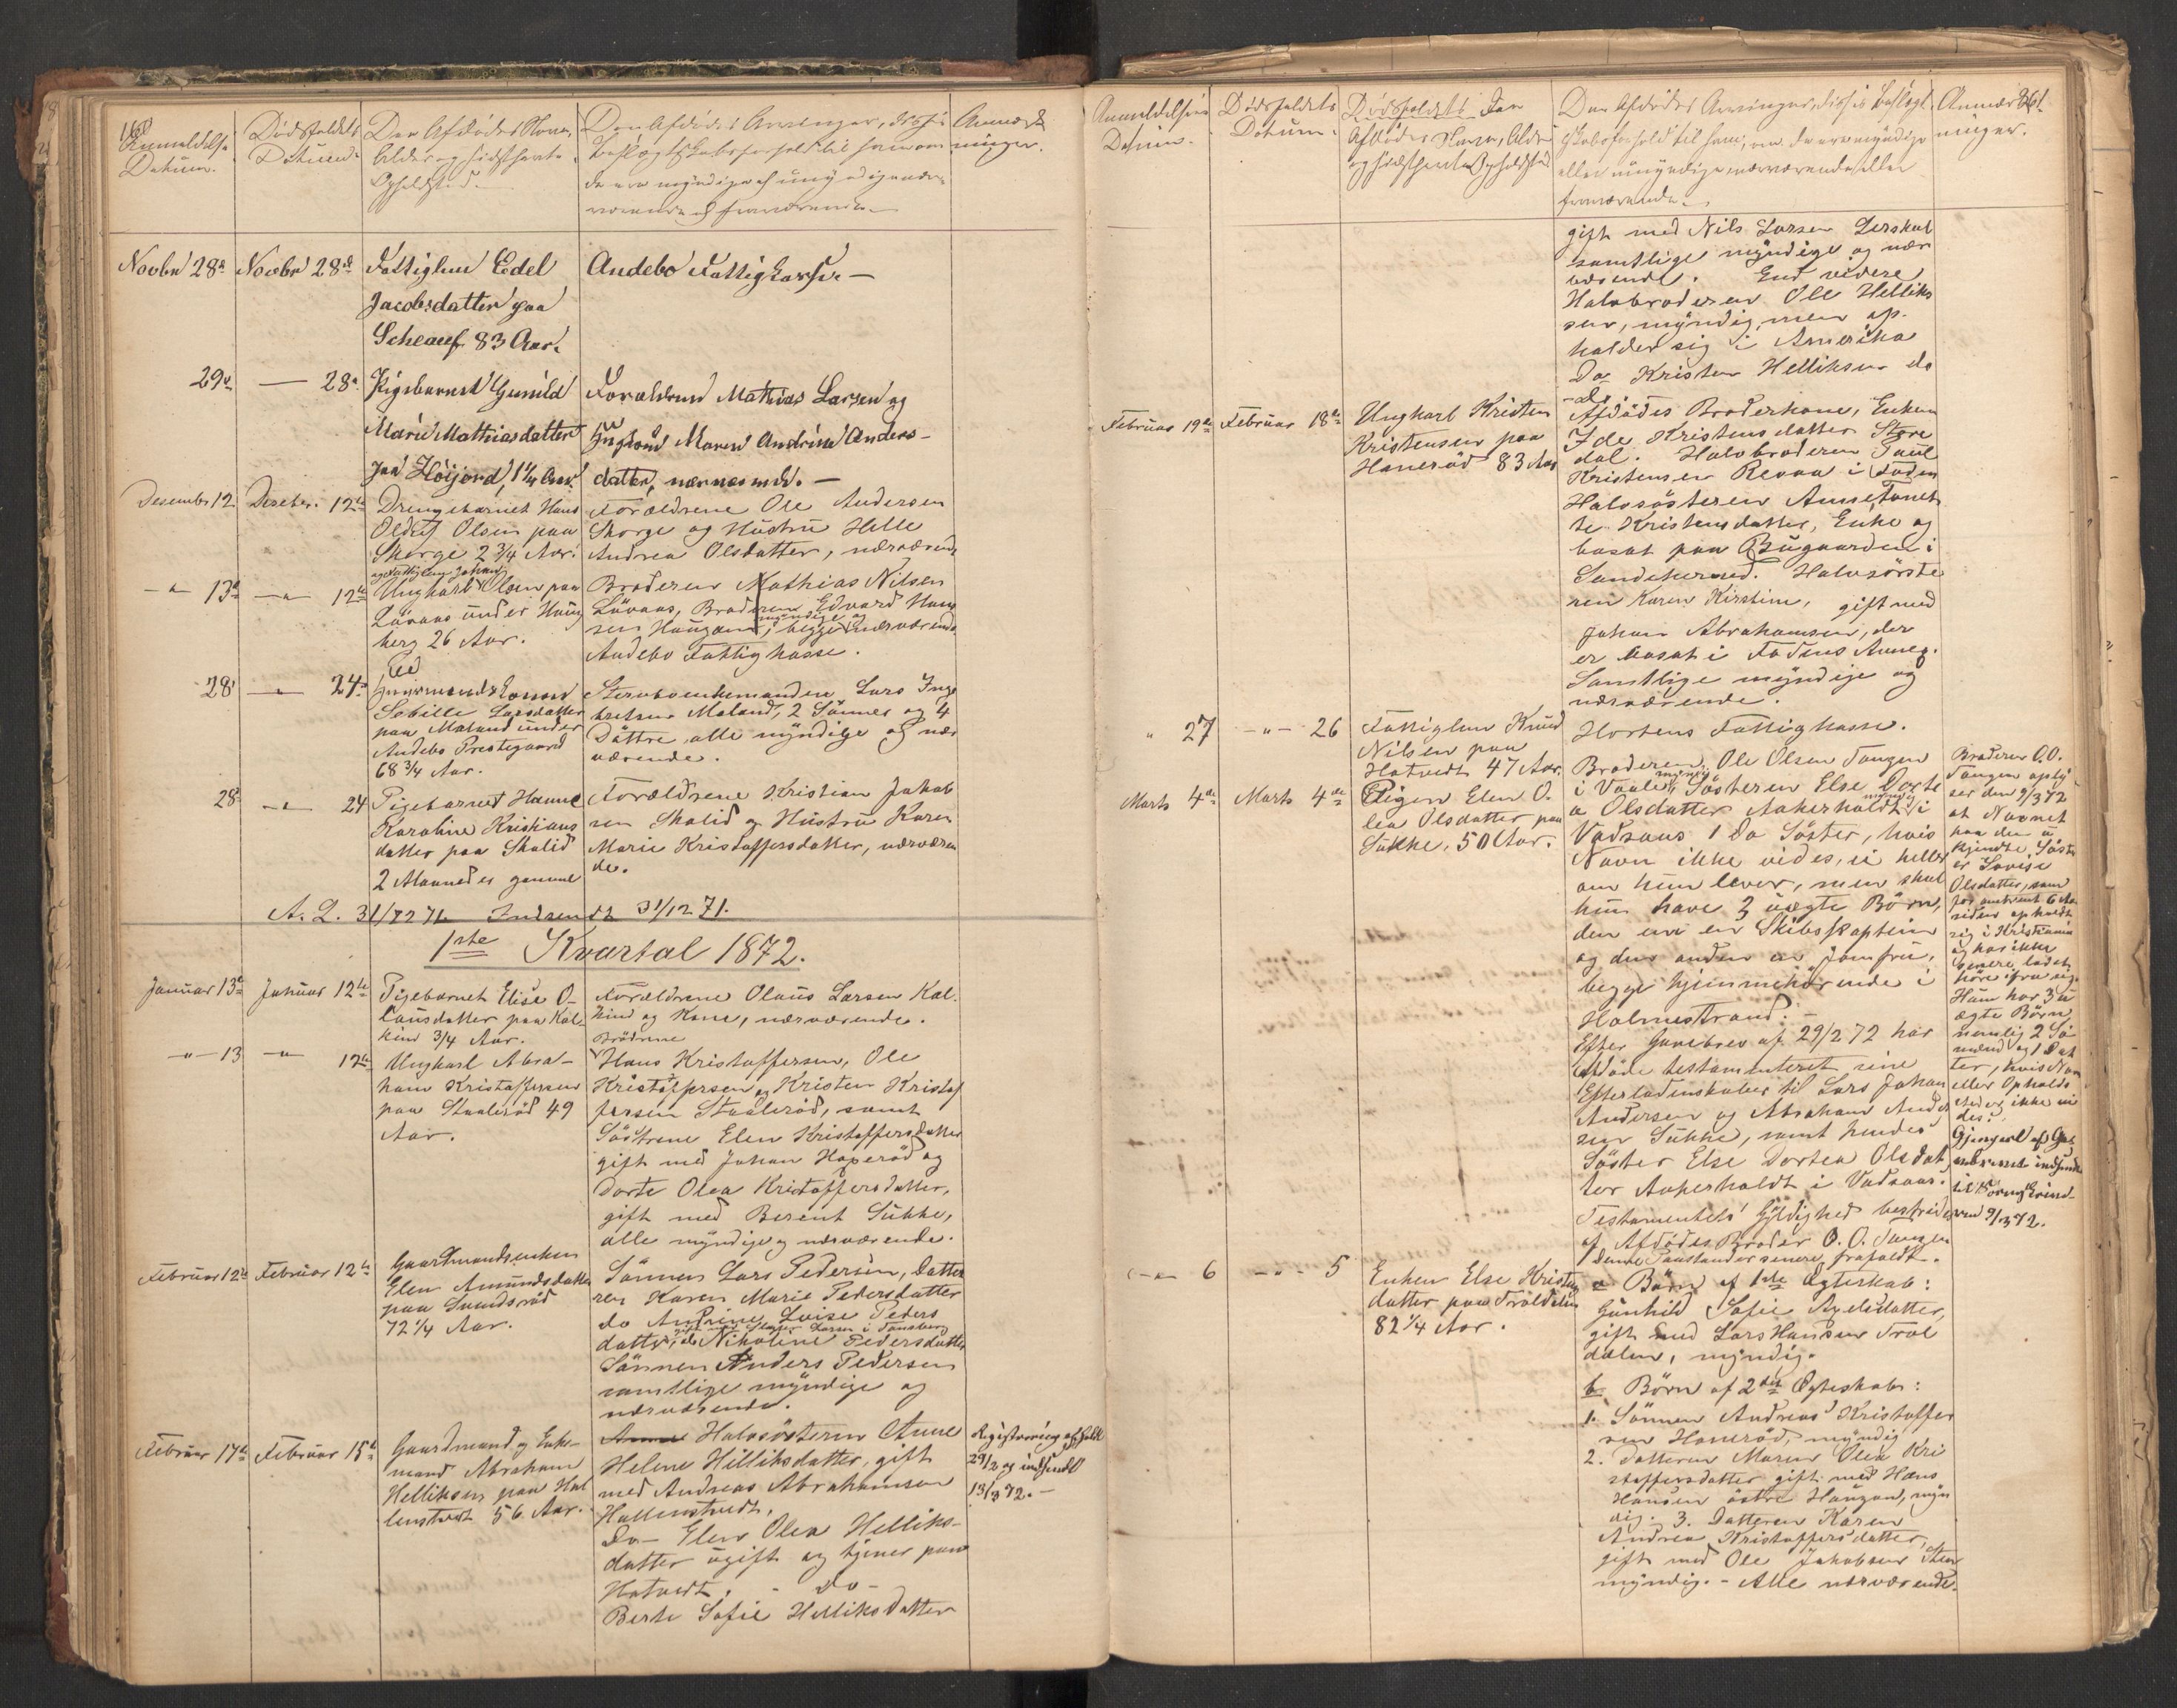 160
Anmeldelse
Datum.
Dødsfaldets
Datum.
Den Afdødes Navn,
Alder og sidsthavte
Opholdssted.
Den Afdødes Arvinger, disses
Beslægtskabsforhold til ham om
de ere myndige el umyndige nær-
værende el fraværende.
Anmærk
ninger.
Novbr 28de
Novbr 28de
Fattiglem Edel
Jacobsdatter paa
83 Aar.
Andebo Fattigkasse. —
29de
— 28de
Pigebarnet Gunild
Marie Mathiasdatter
paa Höijord, 1 1/4 Aar.
Forældrene Mathias Larsen og
Maren Andrine Anders-
datter, nærværende. —
Desembr 12
Desebr. 12te
Drengebarnet Hans
Oluf Olsen paa
Skorge 2 3/4 Aar.
Forældrene Ole Andersen
Skorge og Hustru Helle
Andrea Olsdatter, nærværende
— " 13de
— " — 12te
og Fattiglem Johan
Ungkarl Olsen paa
Lövaas under Haug
berg 26 Aar.
Broderen Mathias Nilsen
Lövaas, Broderen Edvard Hans
sen Haugan, begge myndige og nærværende
Andebo Fattigkasse.
28
— " — 24de
Sebille Larsdatter
paa Moland under
Andebo Prestegaard
68 3/4 Aar.
Stervboenkemanden Lars Inge
bretsen Moland, 2 Sönner og 4
Döttre alle myndige og nær
værende.
28
— " — 24
Pigebarnet Hanne
Karoline Kristians
datter paa Skolid
2 Maaneder gammel
Forældrene Kristian Jakob
sen Skolid og Hustru Karen
Marie Kristoffersdatter, nærværen
de.
A. Q. 31/12 71 Indsendt 31/12 71.
1ste Kvartal 1872.
Januar 13de
Januar 12te
Pigebarnet Elise O-
lausdatter paa Kol-
kind 3/4 Aar.
Forældrene Olaus Larsen Kol-
kind og Kone, nærværende.
— " — 13
— " — 12te
Ungkarl Abra-
ham Kristoffersen
paa Staalerød 49
Aar.
Brödrene
Hans Kristoffersen, Ole
Kristoffersen og Kristen Kristof
fersen Staalerød, samt
Söstrene Elen Kristoffersdatter
gift med Johan Haperød og
Dorte Olea Kristoffersdatter,
gift med Berent Sukke,
alle myndige og nærværende.
Februar 12te
Februar 12te
Gaardmandsenken
Elen Amundsdatter
paa
72 1/4 Aar.
Sönnen Lars Pedersen, Datte
ren Karen Marie Pedersdatter
do Andrine Loise Peders
datter, gift med Larsen i Tønsberg
do Nikoline Pedersdatter
Sönnen Anders Pedersen
samtlige myndige og
nærværende.
Februar 17de
Februar 15de
Gaardmand og Enke-
mand Abraham
Helliksen paa Hal
lenstvedt 56 Aar.
Halvsösteren Anne
Helene Helliksdatter, gift
med Andreas Abrahamsen
Hallenstvedt.
Do Elen Olea Helliks-
datter ugift og tjener paa
Hotvedt. - Do -
Berte Sofie Helliksdatter
Registrering afholdt
29/2 og indsendt
13/3 72. —
161.
Anmeldelsens
Datum.
Dødsfaldets
Datum.
Dødsfaldets Den
Afdødes Navn, Alder
og sidsthavte Opholdssted
Den Afdødes Arvinger, disses Beslægt
skabsforhold til ham, om de ere myndige
eller umyndige, nærværende eller
fraværende.
Anmærk
ninger.
gift med Nils Larsen Lerskal
samtlige myndige og nær
værende. End videre
Halvbroderen Ole Hellik
sen, myndig, men op-
holder sig i Amerika
Do Kristen Helliksen do
- do.
Februar 19de
Februar 18de
Ungkarl Kristen
Kristensen paa
Hanerød 83 Aar
Afdødes Broderkone, Enken
Ide Kristensdatter Store
dal. Halvbroderen Paul
Kristensen Revaa i Foden
Halvsösteren Anne Tonet
te Kristensdatter, Enke og
bosat paa Bugaarden i
Sandeherred. Halvsöste
ren Karen Kirstine, gift med
Johan Abrahamsen, der
er bosat i Fodens Annex.
Samtlige myndige og
nærværende.
" 27
— " — 26
Fattiglem Knud
Nilsen paa
Hotvedt 47 Aar.
Hortens Fattigkasse.
Marts 4de
Marts 4de
Pigen Elen O-
lea Olsdatter paa
Sukke, 50 Aar.
Broderen Ole Olsen Tangen
i Vaale, myndig Sösteren Else Dorte
a Olsdatter Aakerholdt, myndig i
Vadsaas 1 do Söster, hvis
Navn ikke vides, ei heller
om hun lever, men skal
hun have 3 uægte Börn,
den ene en Skibskaptein
og den anden en Jomfru,
begge hjemmehørende i
Holmestrand. —
Efter Gavebrev af 29/2 72 har
Afdøde testamenteret sine
Efterladenskaber til Lars Johan
Andersen og Abraham Ander
sen Sukke, samt hendes
Söster Else Dortea Olsdat
ter Aakerholdt i Vadsaas.
Testamentets Gyldighed bestrides
af Afdødes Broder O. O. Tangen
Denne Paastand er senere frafaldt.
Broderen O.O.
Tangen oply
ser den 9/3 72
at Navnet
paa den u
kjendte Söster
er Lovise
Olsdatter, som
for omtrent 6 Aar
siden opholdt
sig i Kristiania
og har ikke
senere ladet
høre ifra sig.
Hun har 3 u
ægte Børn,
nemlig 2 Sö
mænd og 1 Dat
ter, hvis Navn
eller Opholds
sted ikke vi
des.
Gjenpart af Ga
vebrevet indsendt
til Sorenskriver
ren 9/3 72.
— " — 6
— " — 5
Enken Else Kristens
datter paa Troldalen
82 1/4 Aar.
a Børn af 1ste Ægteskab:
Gunhild Sofie Axelsdatter,
gift med Lars Hansen Trol
dalen, myndig.
b. Børn af 2det Ægteskab:
1. Sönnen Andreas Kristoffer
sen Hanerød, myndig
2. Datteren Maren Olea Kri
stoffersdatter gift med Hans
Hansen östre Haugan, myn
dig. 3. Datteren Karen
Andrea Kristoffersdatter,
gift med Ole Jakobsen
myndig. - Alle nærværende.